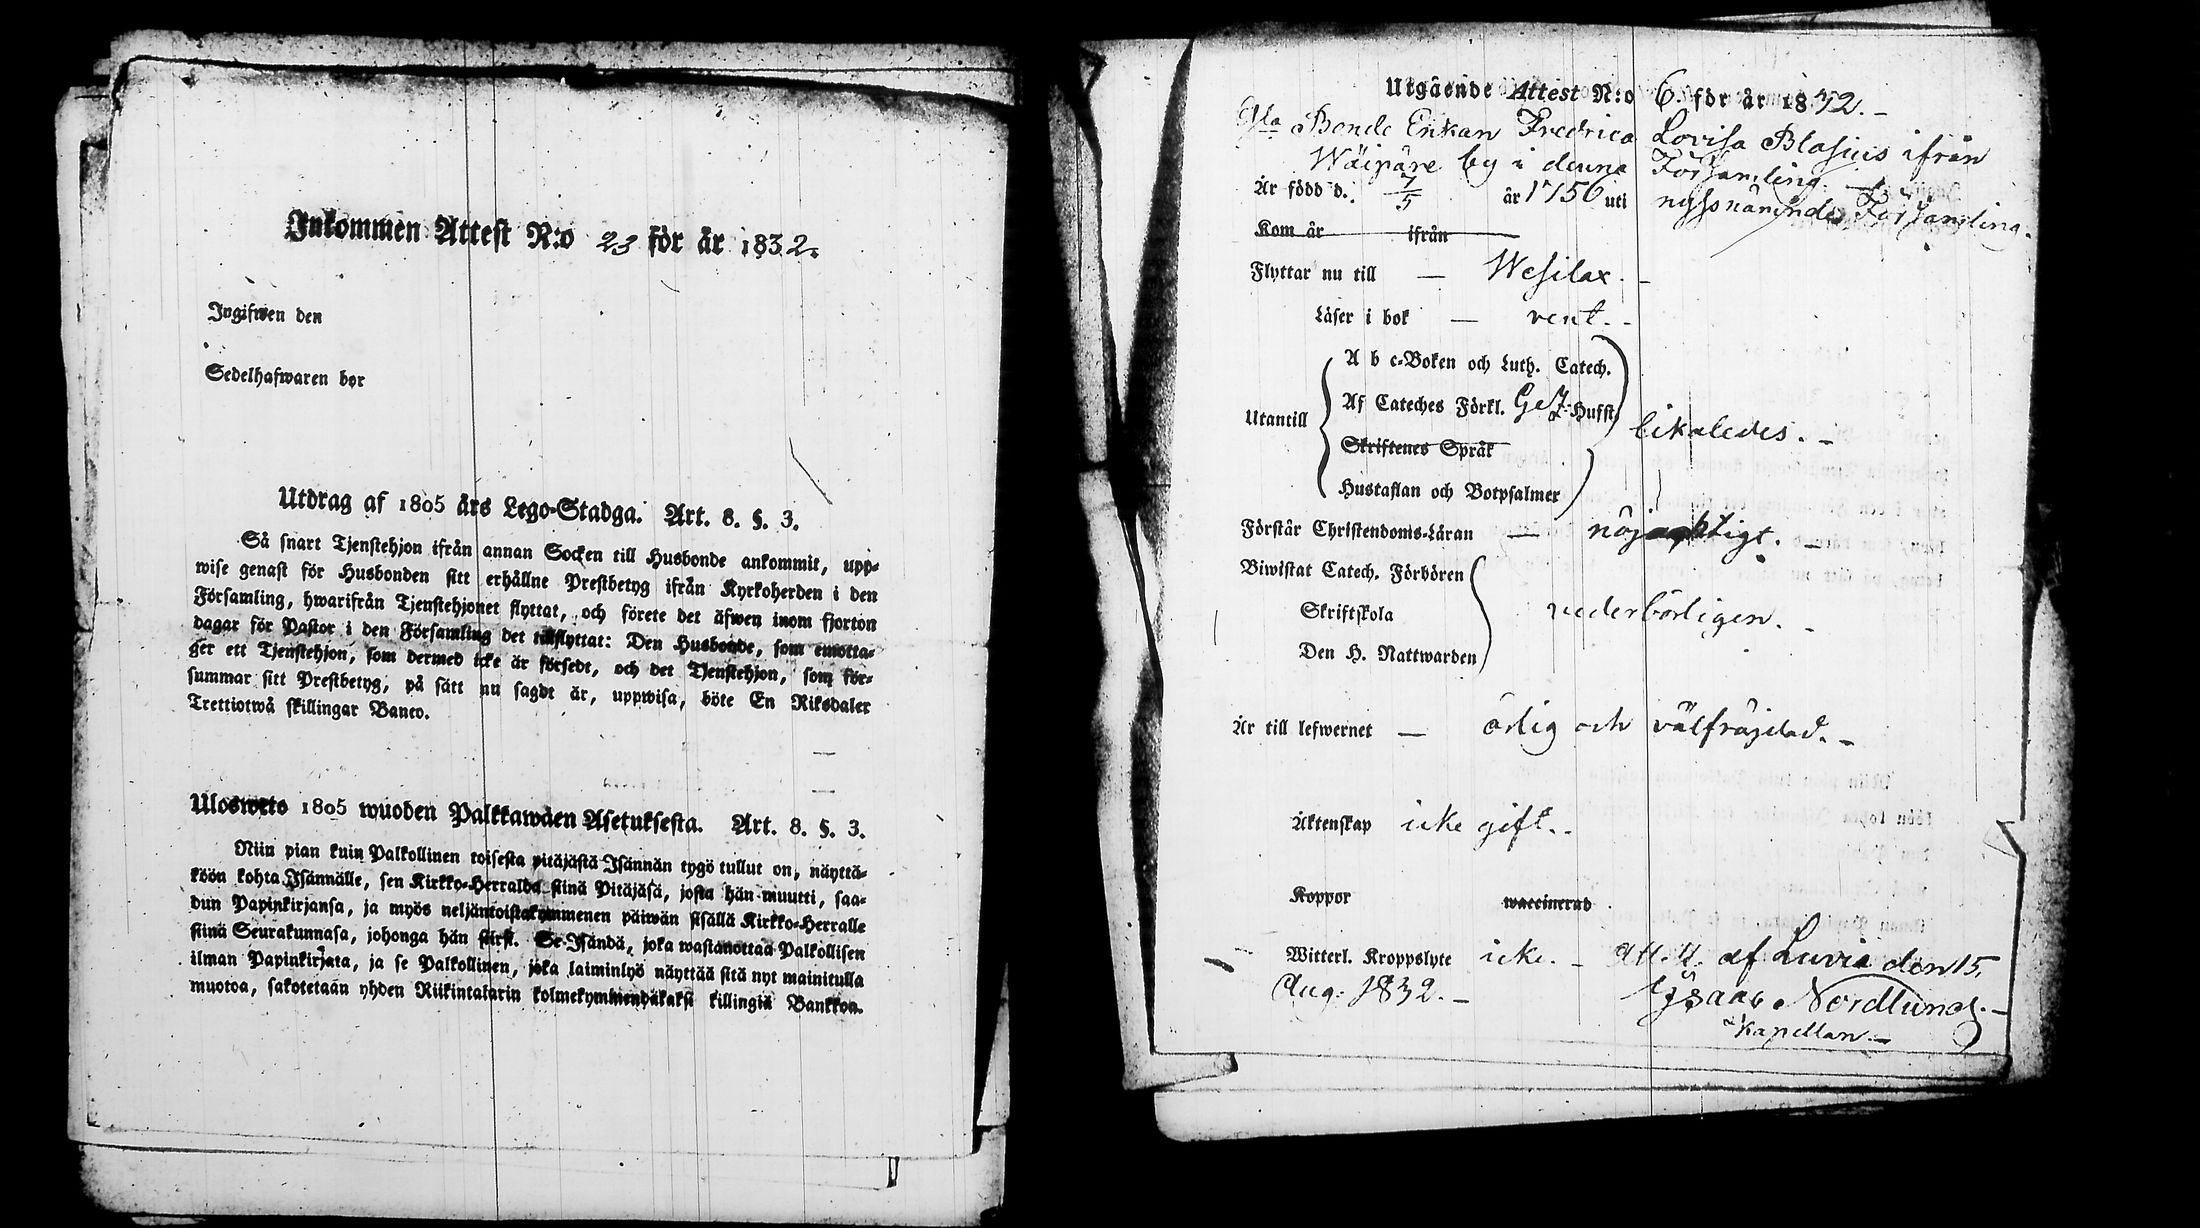 Inkommen Attest N:o 23 för år 1832.
Ingifwen den
Sedelhafwaren bor
Utdrag af 1805 års Lego-Stadga. Art. 8. §. 3.
Så snart Tjenstehjon ifrån annan Socken till Husbonde ankommit, upp-
wise genast för Husbonden sitt erhållne Prestbetyg ifrån Kyrkoherden i den
Församling, hwarifrån Tjenstehjonet flyttat, och förete det äfwen inom fjorton
dagar för Pastor i den Församling det tillflyttat: Den Husbonde, som emotta-
ger ett Tjenstehjon, som dermed icke är försedt, och det Tjenstehjon, som för-
summar sitt Prestbetyg, på sätt nu sagdt är, uppwisa, böte En Riksdaler
Trettiotwå skillingar Banco.
Ulosweto 1805 wuoden Palkkawäen Asetuksesta. Art. 8. §. 3.
Niin pian kuin Palkollinen toisesta pitäjästä Isännän tygö tullut on, näyttä-
köön kohta Isännälle, sen Kirkko-Herralda siinä Pitäjäsä, josta hän muutti, saa-
dun Papinkirjansa, ja myös neljäntoistakymmenen päiwän sisällä Kirkko-Herralle
siinä Seurakunnasa, johonga hän siirsi. Se Isändä, joka wastanottaa Palkollisen
ilman Papinkirjata, ja se Palkollinen, joka laiminlyö näyttää sitä nyt mainitulla
muotoa, sakotetaan yhden Riikintalarin kolmekymmendäkaksi killingiä Bankkoa.
Utgående Attest N:o 6. för år 1832.
Bonde Enkan Fredrica Lovisa Blasius ifrån
Wäipäre by i denna Församling.
Är född d. 7/5 år 1756 uti nyssnämnde Församling.
Kom år ifrån
Flyttar nu till — Wesilax.
Läser i bok — rent.
A b c-Boken och Luth. Catech.
Utantill Af Cateches Förkl. Gez. Hufst. likaledes.
Skriftenes Språk
Hustaflan och Botpsalmer
Förstår Christendoms-Läran — nöjaktigt.
Biwistat Catech. Förhören
Skriftskola vederbörligen.
Den H. Nattwarden
Är till lefwernet — ärlig och välfräjdad.
Äktenskap icke gift.
Koppor waccinerad
Witterl. Kroppslyte icke. Att. af Luvia den 15
Aug: 1832. Isaac Nordlund.
Kapellan.